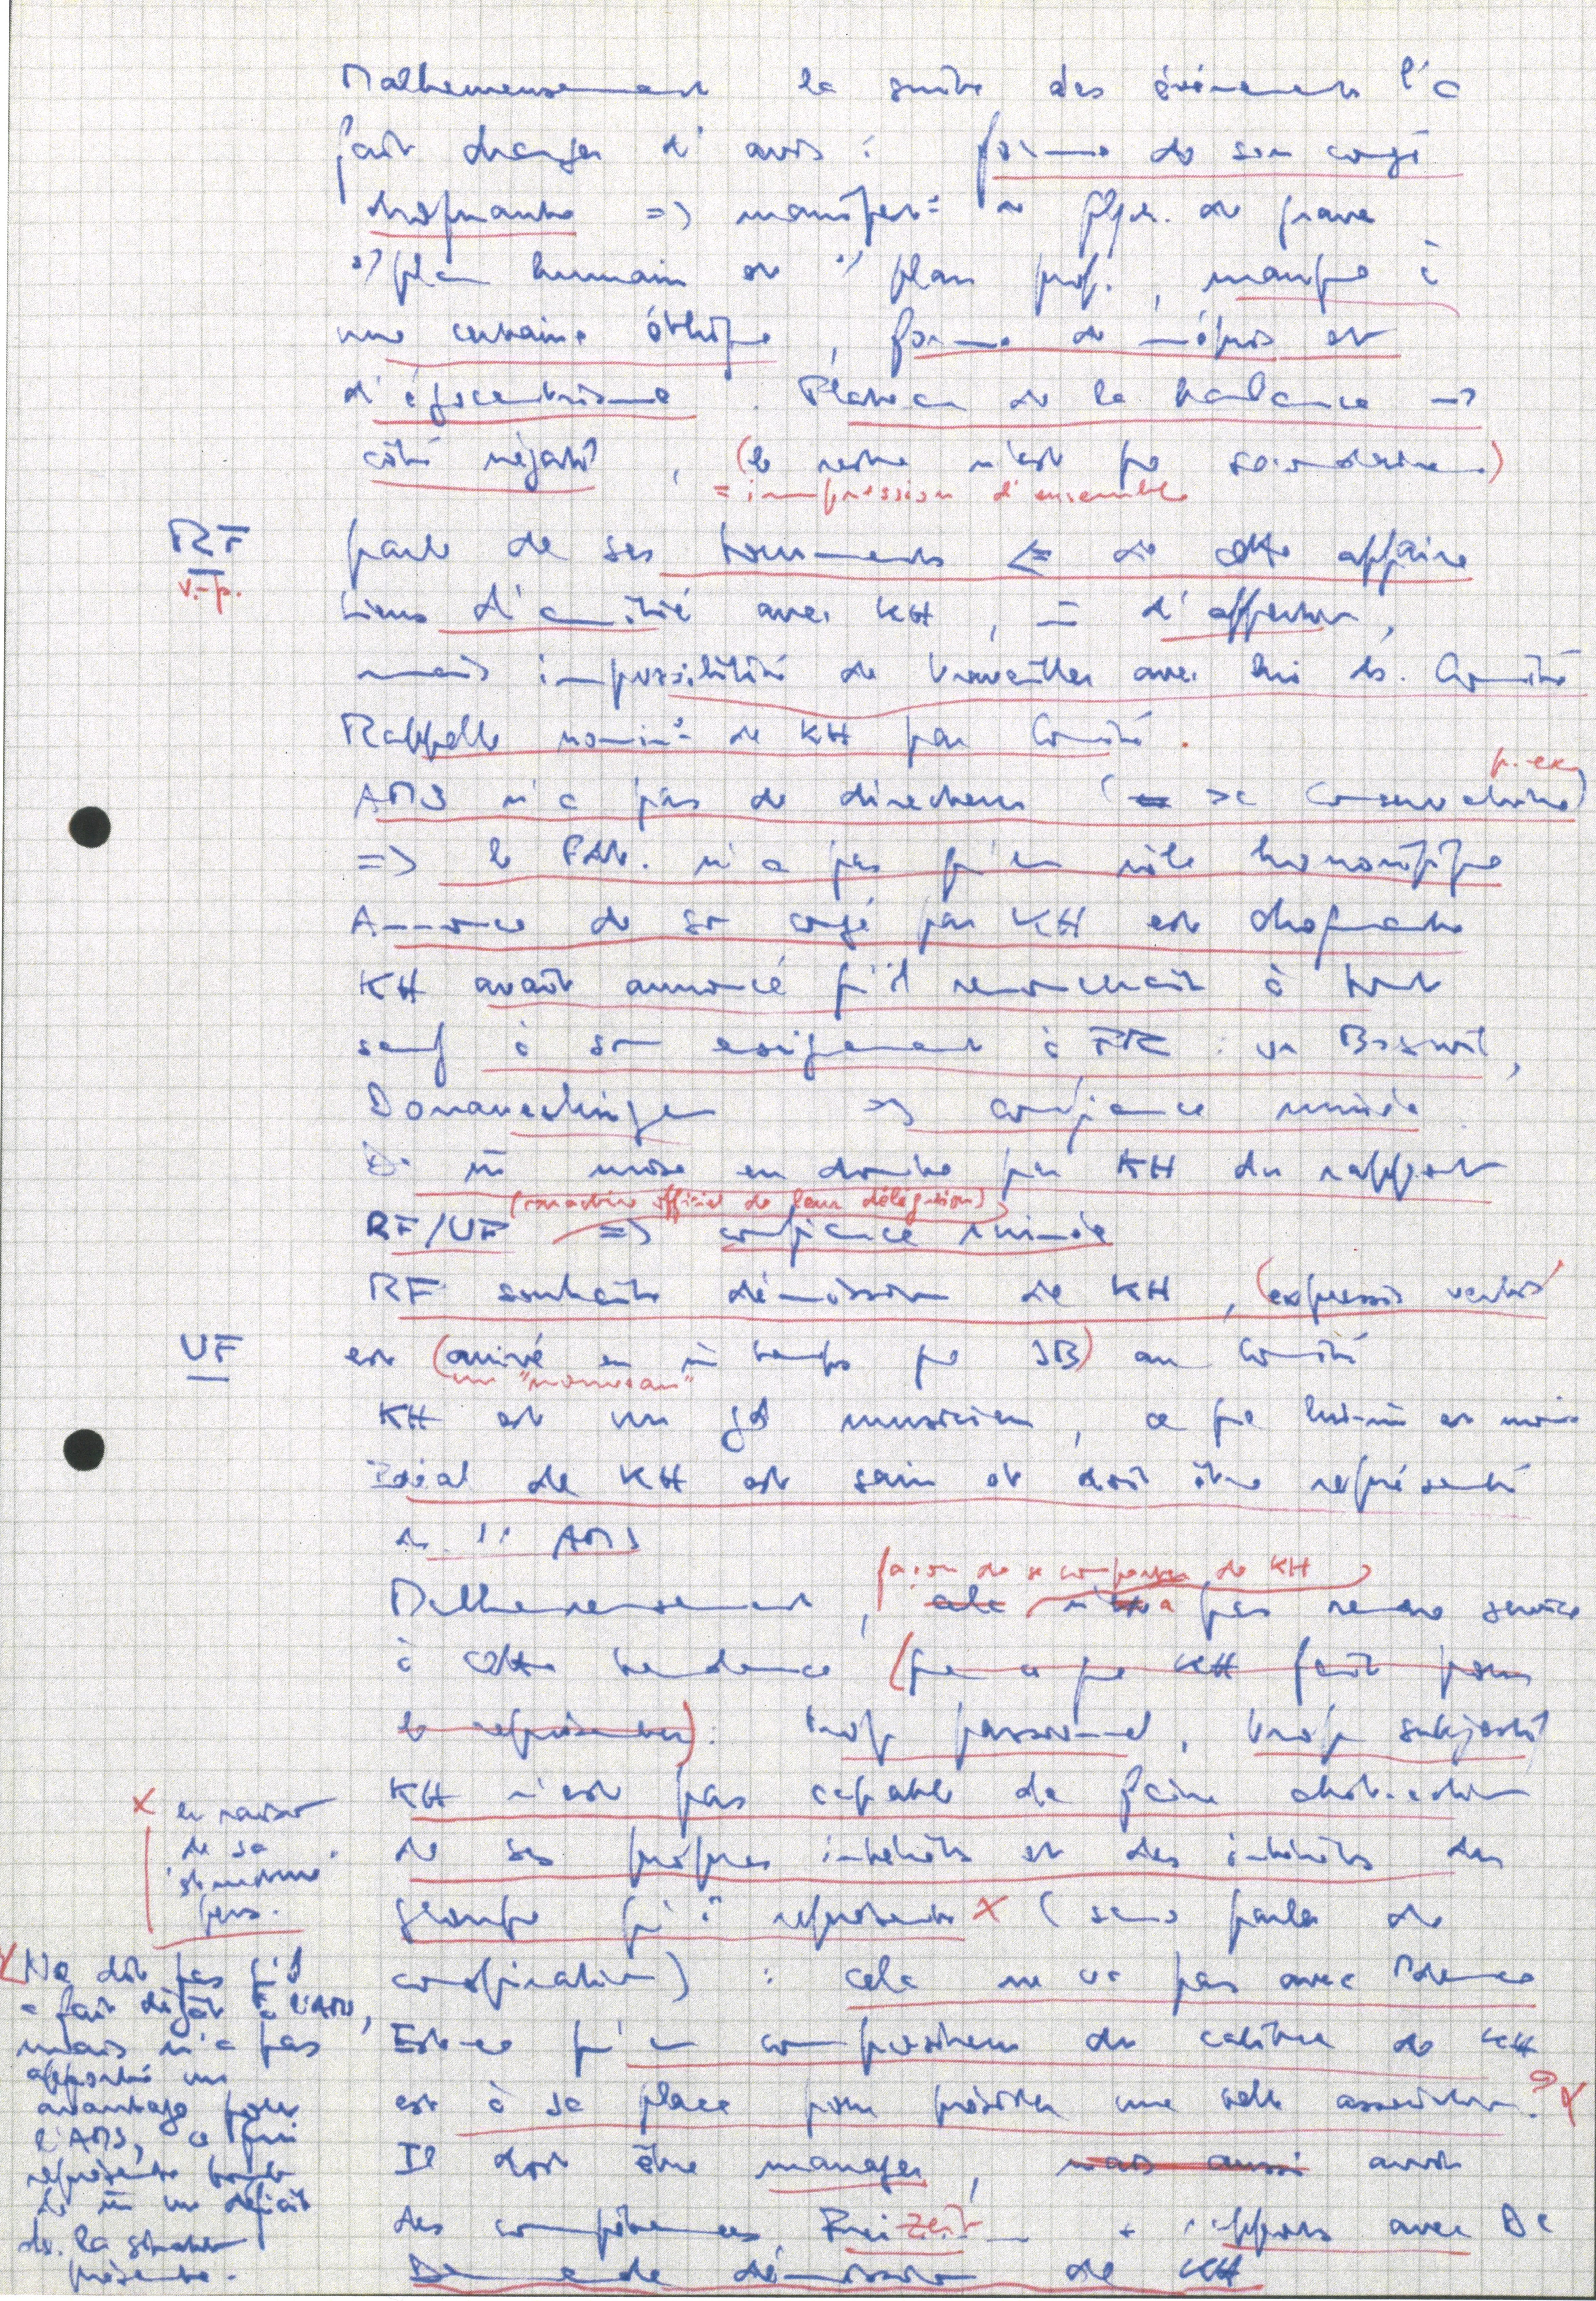 Malheureusement la suite des événements l'a
fait changer d'avis : forme de son congé
choquante => manifest= de
s/ plan humain et s/ plan prof., manque à
une certaine éthique, forme de mépris et
d'égocentrisme. Plateau de la balance →
côté négatif, (le reste n'est que secondaire.)
= impression d'ensemble
RF
v.-p.
parle de ses tourments <= de cette affaire
Liens d'amitié avec KH, = d'affection,
mais impossibilité de travailler avec lui ds. Comité
Rappelle nomin= de KH par Comité.
p. ex.
AMS n'a pas de directeur ( >< Conservatoire)
=> le Pdt. n'a pas qu'un rôle honorifique
Annonce de son congé par KH est choquante
KH avait annoncé qu'il renoncerait à tout
sauf à son enseignement à FR : va Boswil,
Donaueschingen => confiance ruinée
De m̄ mise en doute par KH du rapport
(caractère officiel de leur délégation)
RF/UF => confiance ruinée
RF souhaite démission de KH, (expressis verbis)
UF
est (arrivé en m̄ temps que JB) au Comité
un "nouveau"
KH est un gd musicien, ce que lui-m̄ est moins
Idéal de KH est sain et doit être représenté
ds. l'AMS
façon de se comporter de KH
Malheureusement, cela n'a pas rendu service
à cette tendance (que ce que KH fait pour
le représenter) : trop personnel, trop subjectif
KH n'est pas capable de faire abstraction
de ses propres intérêts et des intérêts du
groupe qu'il représente x (sans parler de
conspiration) : cela ne va pas avec
x en raison
de sa
structure
pers.
Est-ce qu'un compositeur du calibre de KH
est à sa place pour présider une telle association ? x
Il doit être manager, mais aussi avoir
des compétences, Freizeit + rapports avec
Demande démission de KH
x Ne dit pas qu'il
a fait dégât à l'AMS,
mais n'a pas
apporté un
avantage pour
l'AMS, ce qui
représente tout
de m̄ un déficit
ds. la situation
présente.